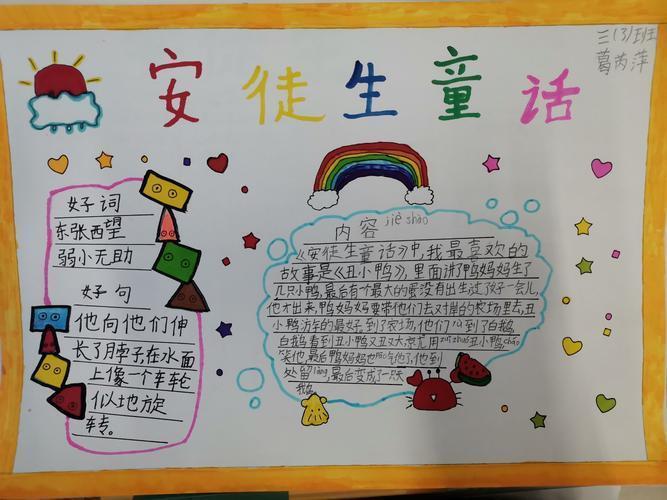 安徒生童话
三(3)班
葛芮萍
好词
东张西望
弱小无助
好句
他向他们伸
长了脖子在水面
上像一个车轮
似地旋
转。
内容 jiè shao
《安徒生童话》中,我最喜欢的
故事是《丑小鸭》,里面讲了鸭妈妈生了
几只小鸭,最后有个最大的蛋没有出生过了好一会儿,
他才出来,鸭妈妈要带他们去对岸的农场里去,丑
小鸭游的最好,到了农场,他们 到了白鹅,
白鹅看到丑小鸭又丑又大 尤用 丑小鸭 cháo
笑他,最后鸭妈妈也 他了,他到
处留làng,最后变成了一跌
鹅